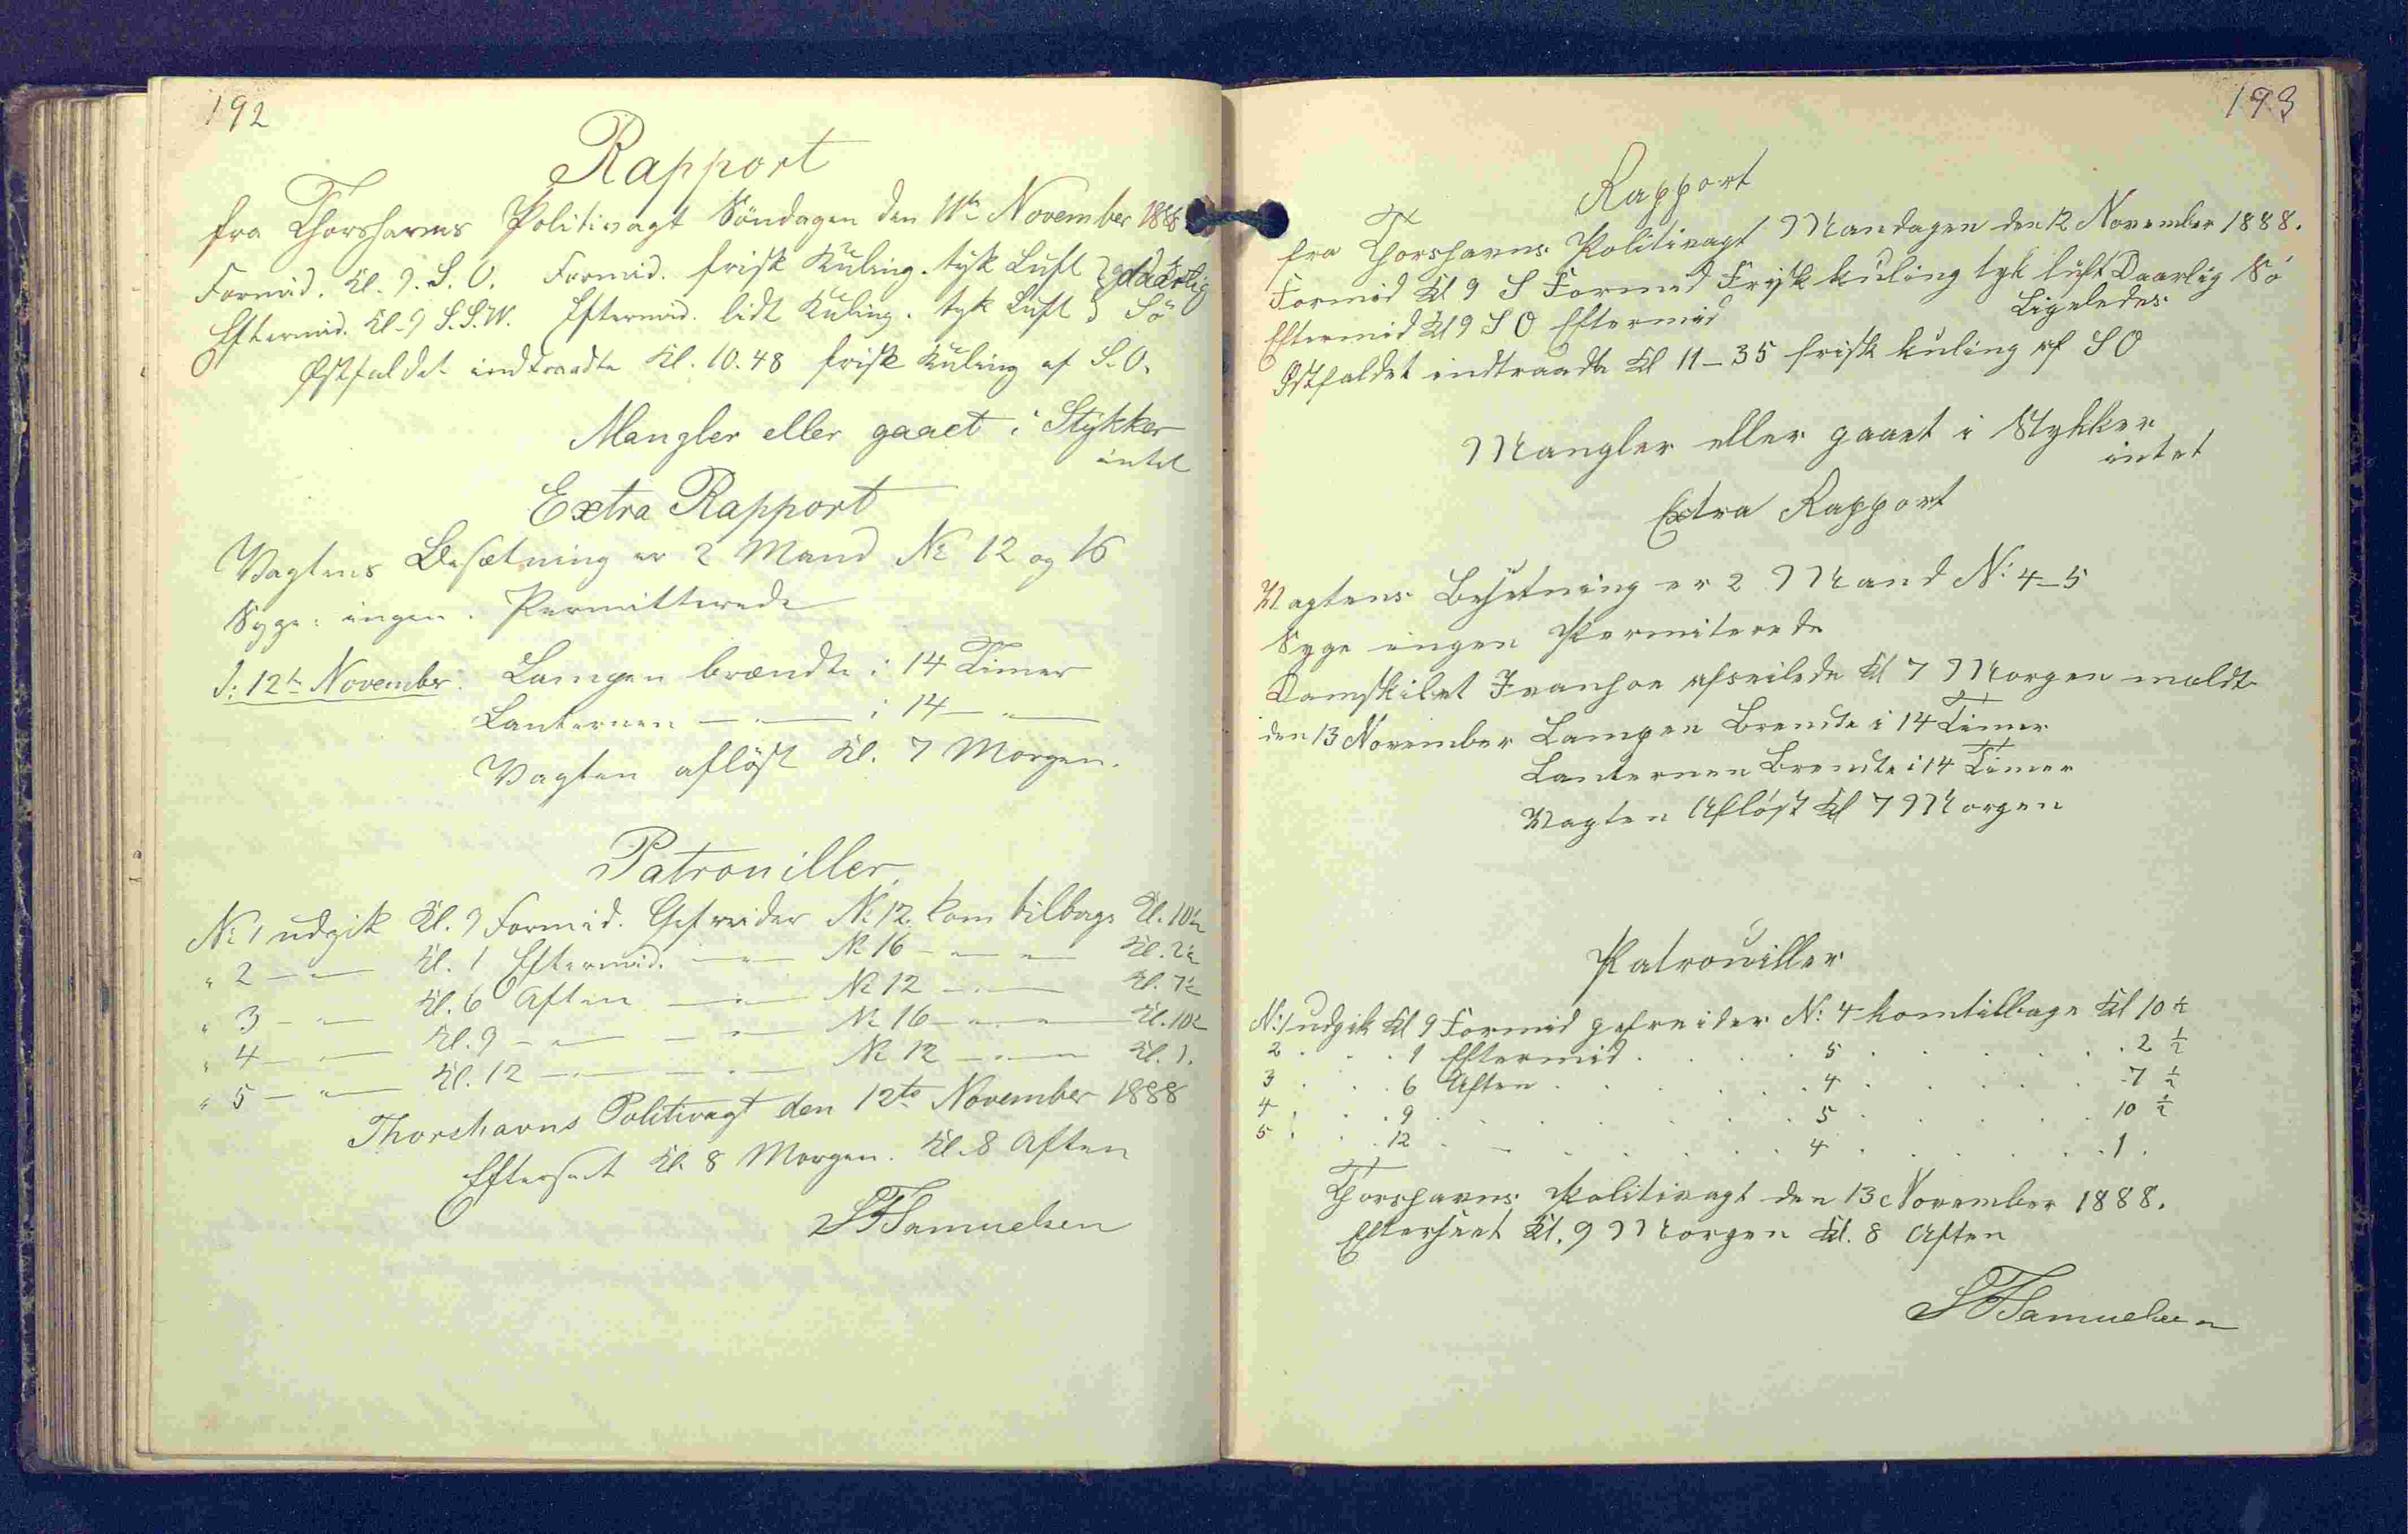 192
Rapport
fra Thorshavns Politivagt Söndagen den 11te November 1888
Formid. Kl. 9. S. O. Formid. frisk Kuling. tyk Luft } daarlig
Eftermid. Kl. 9 S.S.W. Eftermid. lidt Kuling. tyk Luft } Sö
Østfaldet indtraadte Kl. 10.48 frisk Kuling af S.O.
Mangler eller gaaet i Stykker
intet
Extra Rapport
Vagtens Besætning er 2 Mand No 12 og 16
Syge: ingen. Permitterede
d: 12te November. Lampen brændte i 14 Timer
Lanternen — " — i 14 — " —
Vagten aflöst Kl. 7 Morgen.
Patrouiller
No 1 udgik Kl. 9 Formid. Gefreider No 12. kom tilbage Kl. 10½
" 2 — " — Kl. 1 Eftermid. — " — No 16 — " — " — Kl. 2½
" 3 — " — Kl. 6 Aften — " — No 12 — " — Kl. 7½
" 4 — " — Kl. 9 — " — — " — No 16 — " — " — Kl. 10½
" 5 — " — Kl. 12 — " — — " — No 12 — " — Kl. 1.
Thorshavns Politivagt den 12te November 1888
Efterseet Kl. 8 Morgen. Kl. 8 Aften
SFSamuelsen
193
Rapport
fra Thorshavns Politivagt Mandagen den 12 November 1888.
Formid Kl 9 S Formid Frisk kuling tyk luft Daarlig Sö
Eftermid Kl 9 S O Eftermid Ligeledes
Østfaldet indtraadte Kl 11–35 frisk kuling af S O
Mangler eller gaaet i Stykker
intet
Extra Rapport
Vagtens Besetning er 2 Mand No: 4–5
Syge ingen Permiterede
Damskibet Ivanhoe afseilede Kl 7 Morgen meldt
den 13 November Lampen Brendte i 14 Timer
Lanternen Brendte i 14 Timer
Vagten Aflöst Kl 7 Morgen
Patrouiller
No: 1 udgik Kl 9 Formid gefreider No: 4 kom tilbage Kl 10 ½
2 . . . 1 Eftermid . . . . 5 . . . . . . 2 ½
3 . . . 6 Aften . . . . . 4 . . . . . . 7 ½
4 . . . 9 . . . . . . . 5 . . . . . 10 ½
5 . . . 12 . . . . . . . 4 . . . . . . 1 .
Thorshavns Politivagt den 13 November 1888.
Efterseet Kl. 9 Morgen Kl. 8 Aften
SFSamuelsen